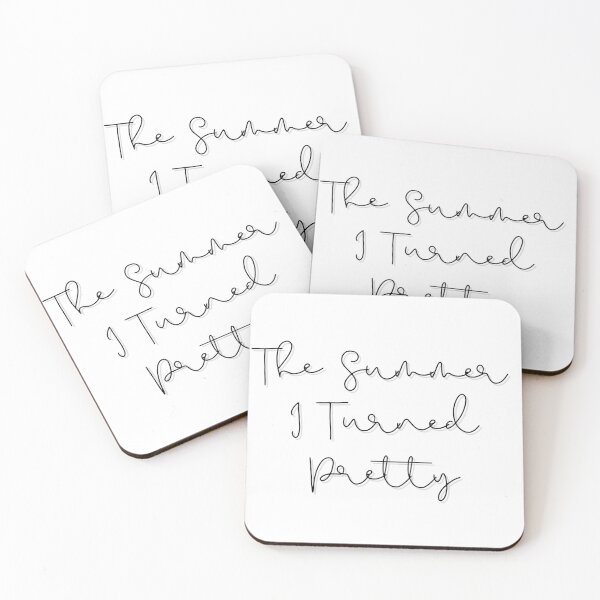 The Summer
I
The Summer
I Turned
Pretty
The Summer
I Turned
Pretty
The Summer
I Turned
Pretty